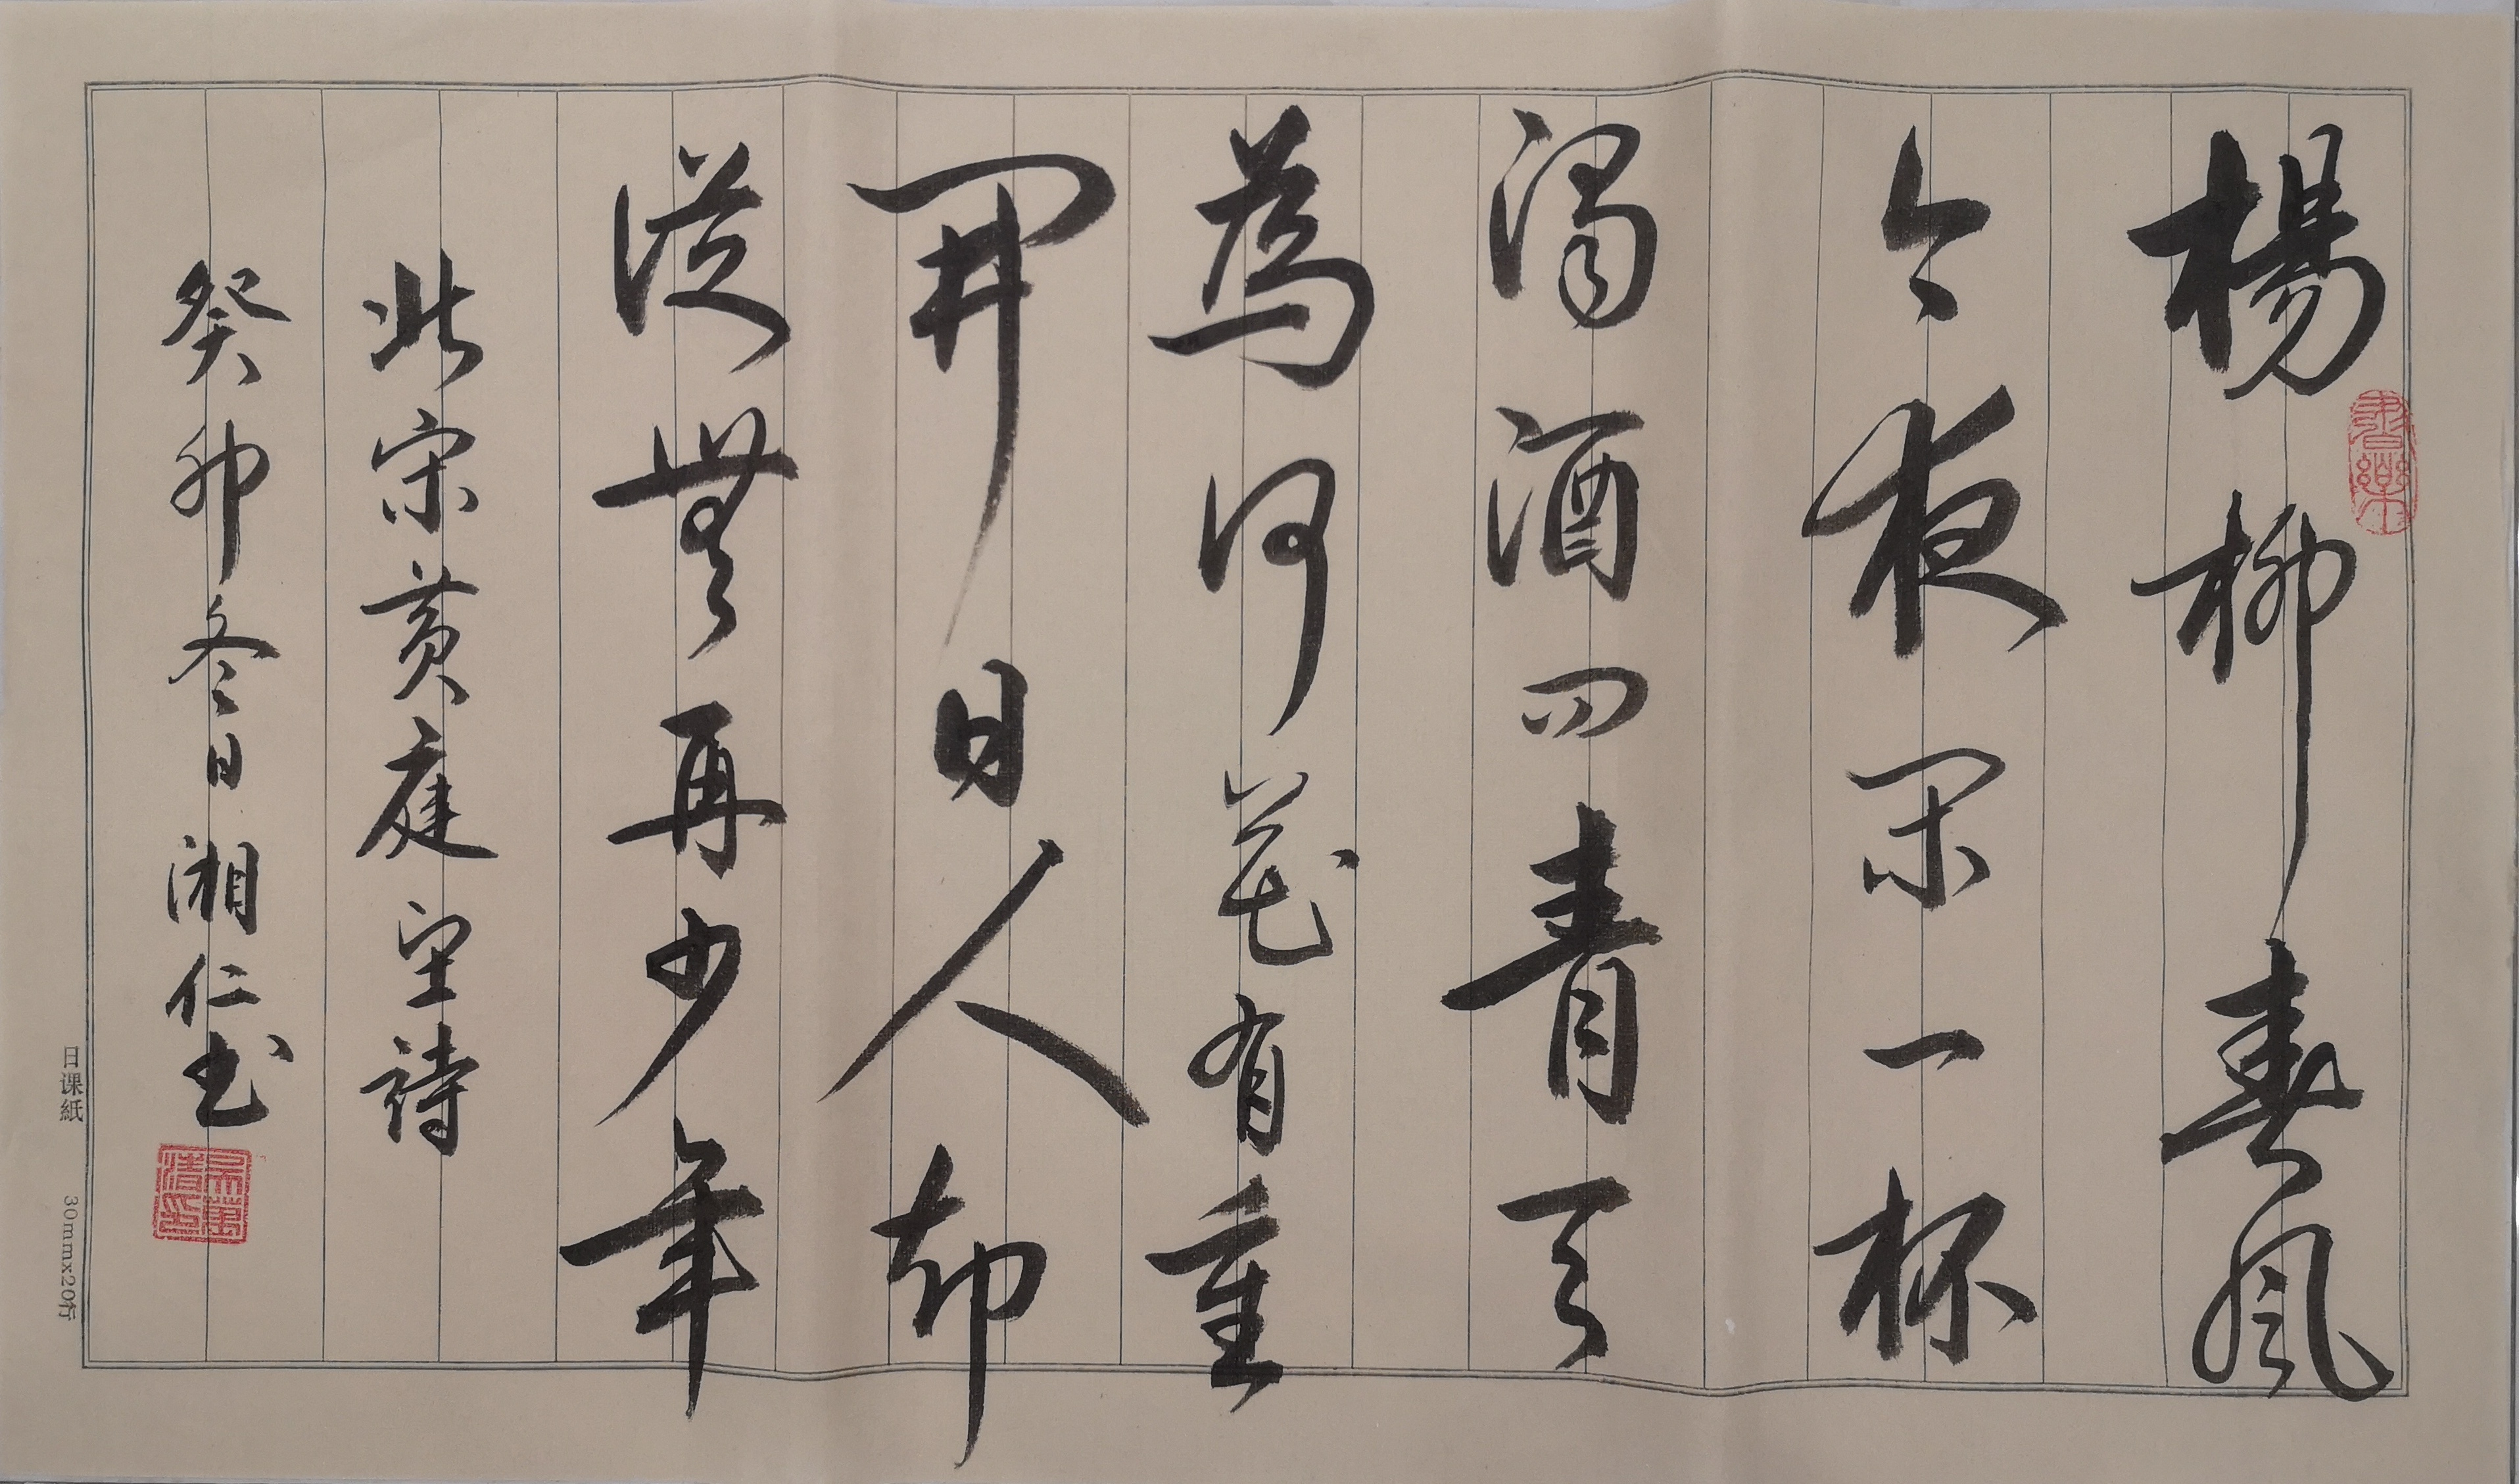 楊柳春風
今夜閑一杯
濁酒四青天
為何花有重
開日人却
從無再少年
此宋黄庭堅詩
癸卯冬日湘仁書
書樂
日课紙 30mmx20行